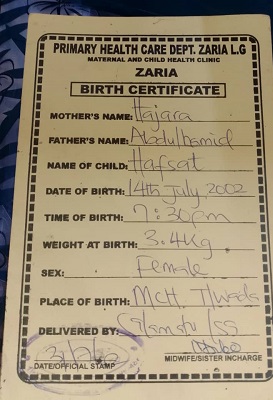 PRIMARY HEALTH CARE DEPT. ZARIA L.G
MATERNAL AND CHILD HEALTH CLINIC
ZARIA
BIRTH CERTIFICATE
MOTHER'S NAME: Hajara
FATHER'S NAME: Abdulhamid
NAME OF CHILD: Hafsat
DATE OF BIRTH: 14th July, 2002
TIME OF BIRTH: 7:30pm
WEIGHT AT BIRTH: 3.4Kg
SEX: Female
PLACE OF BIRTH: MCH
DELIVERED BY:
DATE/OFFICIAL STAMP
MIDWIFE/SISTER INCHARGE